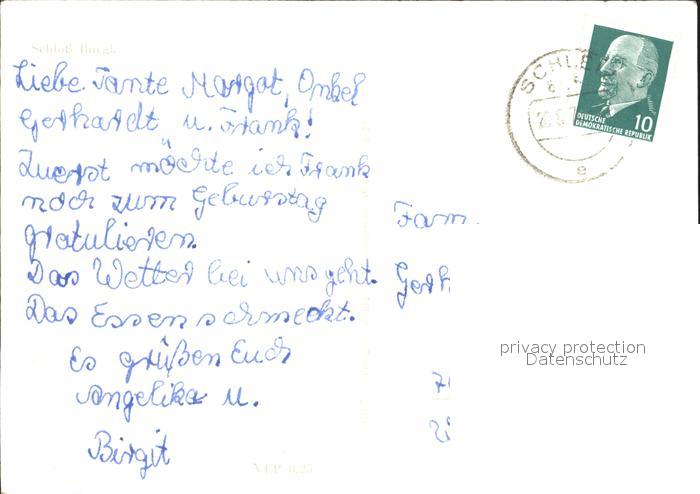 Schloß Burgk
Liebe Tante Margot, Onkel
Gerhardt u. Frank!
Zuerst möchte ich Frank
noch zum Geburstag
gratulieren.
Das Wetter bei uns geht.
Das Essen schmeckt.
Es grüßen Euch
Angelika u.
Birgit
VEP 0,25
SCHLE
e
DEUTSCHE
DEMOKRATISCHE REPUBLIK
10
Fam.
Gerh
privacy protection
Datenschutz